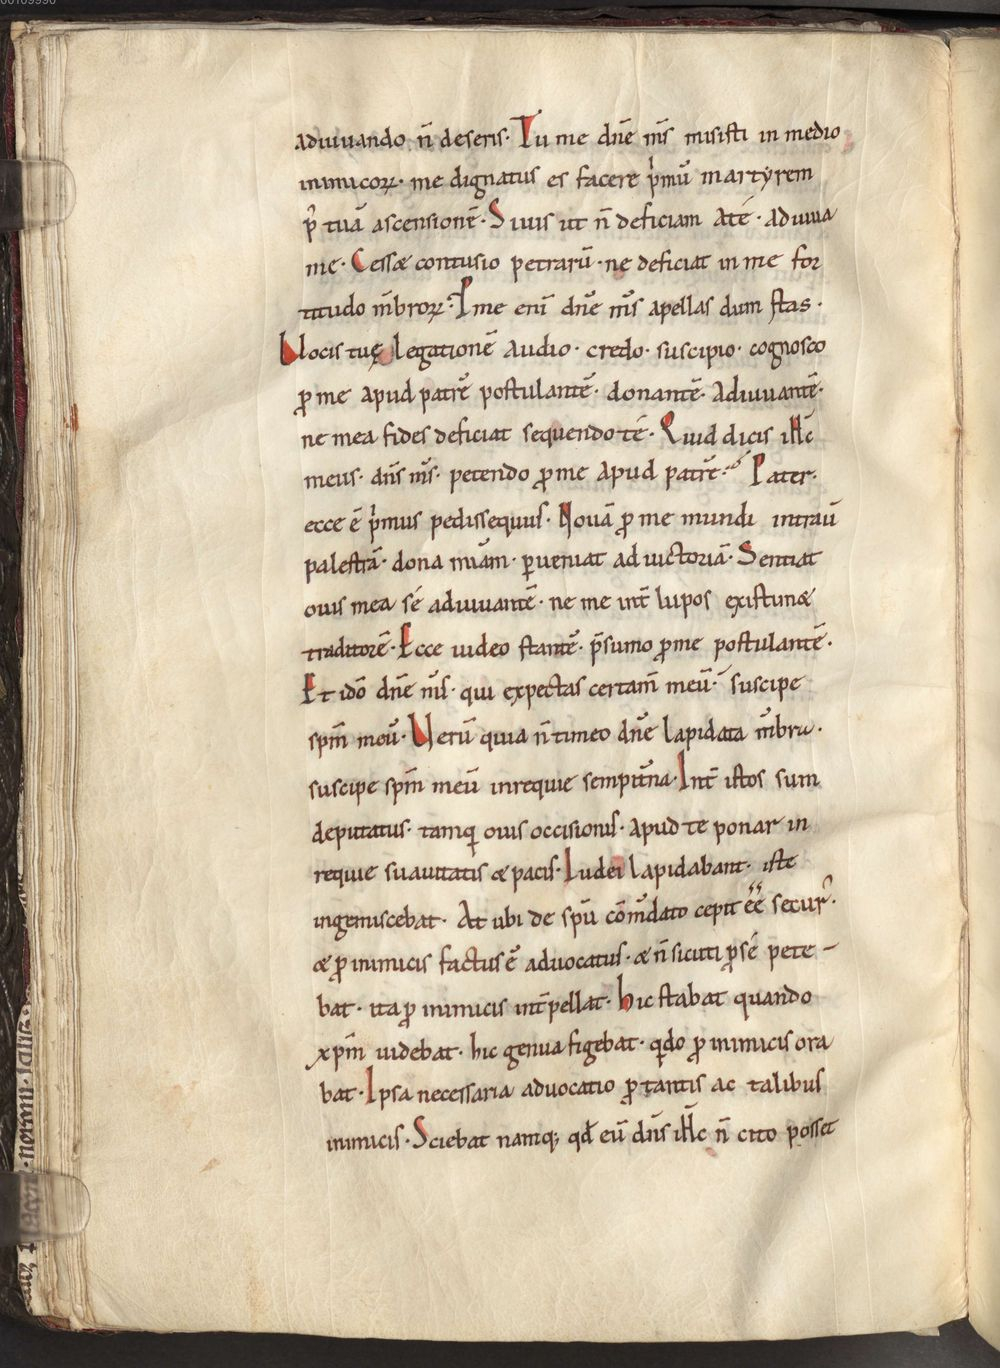 00109990
adiuuando n̄ deseris· Tu me dn̄e m̄s misisti in medio
inimicoꝝ· me dignatus es facere p̍mū martyrem
p̃ tuā ascensionē· Si uis ut n̄ deficiam a te· adiuua
me· Cesset contusio petrarū· ne deficiat in me for
titudo m̄broꝝ· P me eni dn̄e m̄s apellas dum stas·
Uocis tuę legationē audio· credo· suscipio· cognosco
ꝓ me apud patrē postulantē· donantē· adiuuantē·
ne mea fides deficiat sequendo te· Quid dicis ih̄c
meus· dn̄s m̄s· petendo ꝓ me apud patrē· Pater·
ecce ē p̍mus pedissequus· Nouā ꝓ me mundi intrauı̄
palestrā· dona miām· ꝑueniat ad uictoriā· Sentiat
ouis mea se adiuuantē· ne me int̄ lupos existimet
traditorē· Ecce uideo stantē· p̄sumo ꝓ me postulantē·
Et idō dn̄e m̄s· qui expectas certam̄ meū· suscipe
spm̄ meū· Uerū quia n̄ timeo dn̄e lapidata m̄bra·
suscipe spm̄ meū in requie sempit̄na· Int̄ istos sum
deputatus· tamq̄ ouis occisionis· apud te ponar in
requie suauitatis et pacis· Iudei lapidabant· iste
ingemiscebat· At ubi de spū com̄dato cepit ee᷎ securꝰ·
et ꝓ inimicis factus ē aduocatus· et n̄ sicuti ꝓ se pete-
bat· ita ꝓ inimicis int̄pellat· Hic stabat quando
xpm̄ uidebat· hic genua figebat· qn̄do ꝓ inimicis ora
bat· Ipsa necessaria aduocatio ꝓ tantis ac talibus
inimicis· Sciebat namq; qd̄ eū dn̄s ih̄c n̄ cito posset